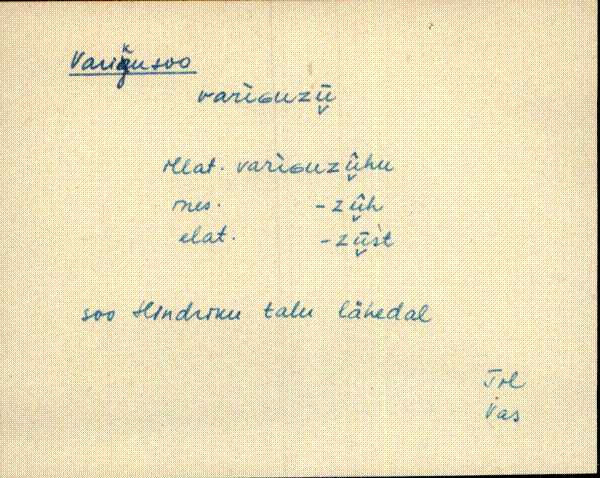 Varigusoo
vari̬ɢuzū̬
illat. variɢuzû̬hu
ines. -zû̬h
elat. -zū̬śt
soo Hindriku talu lähedal
Trl
Vas